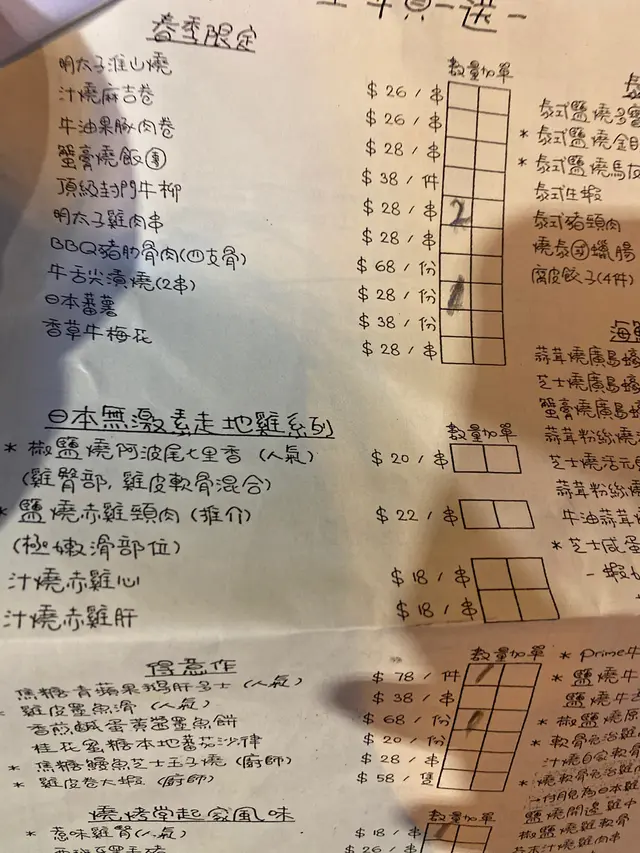 春季限定
數量加單
明太子淮山燒 $26/串
汁燒麻吉卷 $26/串
牛油果豚肉卷 $28/串
蟹膏燒飯 $38/件
頂級封門牛柳 $28/串 2
明太子雞肉串 $28/串
BBQ豬肋骨肉(四支骨) $68/份
牛舌尖漬燒(2串) $28/份 1
日本蕃薯 $38/份
香草牛梅花 $28/串
日本無激素走地雞系列
數量加單
* 椒鹽燒阿波尾七里香 (人氣) $20/串
(雞臀部, 雞皮軟骨混合)
* 鹽燒赤雞頸肉 (推介) $22/串
(極嫩滑部位)
汁燒赤雞心 $18/串
汁燒赤雞肝 $18/串
得意作
數量加單
焦糖青蘋果鵝肝多士 (人氣) $78/件 1
* 雞皮墨魚滑 (人氣) $38/串
香煎鹹蛋黃蓮墨魚餅 $68/份 1
桂花蜜糖本地蕃茄沙律 $20/份
* 焦糖鰻魚芝士玉子燒 (廚師) $28/串
* 雞皮卷大蝦 (廚師) $58/隻
燒烤當起家風味
數量加單
* 惹味雞腎 (人氣) $18/串
$26/串
泰式鹽燒
* 泰式鹽燒金
* 泰式鹽燒馬友
泰式生蝦
泰式豬頸肉
燒泰國臘腸
腐皮餃子(4件)
海鮮
蒜茸燒廣島蠔
芝士燒廣島蠔
蟹膏燒廣島蠔
蒜茸粉絲燒
芝士燒活元貝
蒜茸粉絲燒
牛油蒜茸燒
* 芝士咸蛋
* Prime牛
* 鹽燒牛
鹽燒牛舌
* 椒鹽燒原
* 軟骨免治雞
汁燒自家軟骨
* 燒軟骨免治雞
鹽燒開邊雞中
椒鹽燒雞軟骨